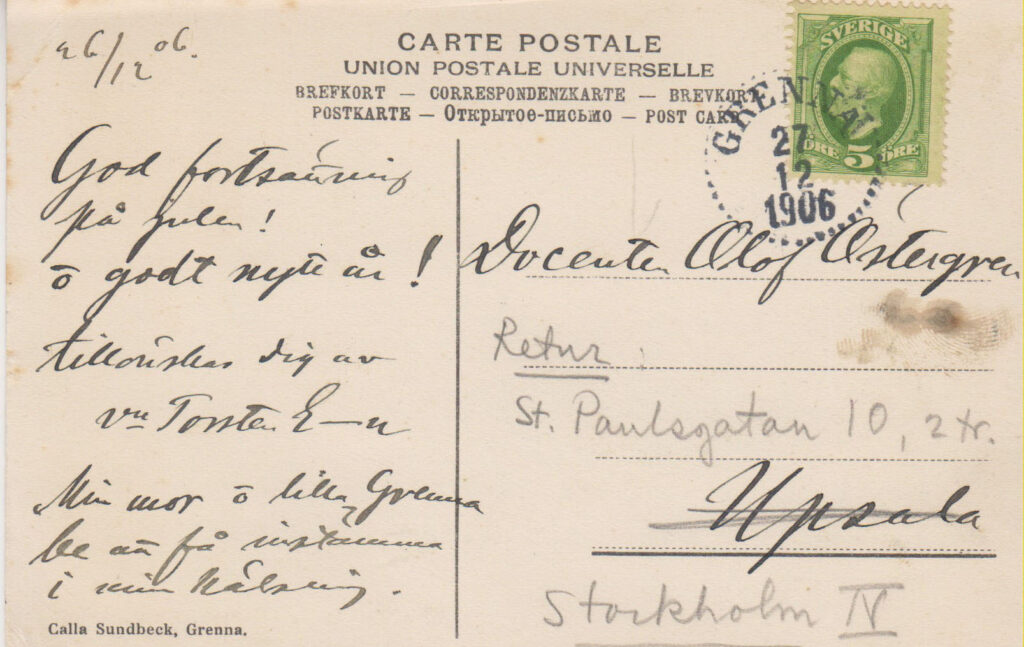 26/12 06.
CARTE POSTALE
UNION POSTALE UNIVERSELLE
BREFKORT — CORRESPONDENZKARTE — BREVKORT
POSTKARTE — Открытое-письмо — POST CARD
SVERIGE
ÖRE 5 ÖRE
GRENNA
27
12
1906
God fortsättning
på julen!
ō godt nytt år!
tillönskas dig av
vn Torsten E—n
Min mor ō lilla Grenna
be att få instämma
i min hälsning.
Calla Sundbeck, Grenna.
Docenten Olof Östergren
Retur
St. Paulsgatan 10, 2 tr.
Upsala
Stockholm IV